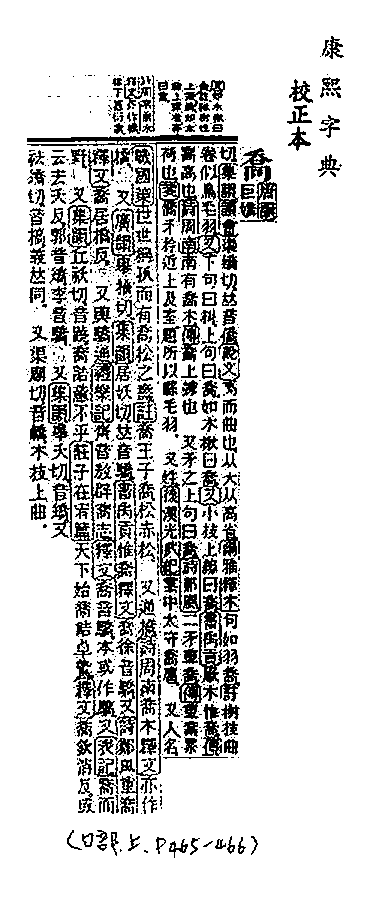 康熙字典
校正本
喬 唐韻巨嬌
切集韻韻會渠嬌切𠀤音僑說文高而曲也从夭从高省爾雅釋木句如羽喬註樹枝曲
卷似鳥毛羽又下句曰朻上句曰喬如木楸曰喬又小枝上繚曰喬書禹貢厥木惟喬傳
喬高也詩周南南有喬木傳喬上竦也 又矛之上句曰喬詩鄭風二矛重喬傳重喬累
荷也箋喬矛矜近上及室題所以縣毛羽。 又姓後漢光武紀漢中太守喬扈 又人名
戰國策世世稱孤而有喬松之壽註喬王子喬松赤松 又通橋詩周南喬木釋文亦作
橋 又廣韻舉橋切集韻居妖切𠀤音驕書禹貢惟喬釋文喬徐音驕又詩鄭風重喬
釋文喬居橋反。 又與驕通禮樂記齊音敖辟喬志釋文喬音驕本或作驕又表記喬而
野 又集韻丘祅切音蹺喬詰意不平莊子在宥篇天下始喬詰卓鷙釋文喬欽消反或
云去夭反郭音矯李音驕 又集韻舉夭切音矯又
祛矯切音槁義𠀤同。 又渠廟切音轎木枝上曲。
(口部.上.P465-466)